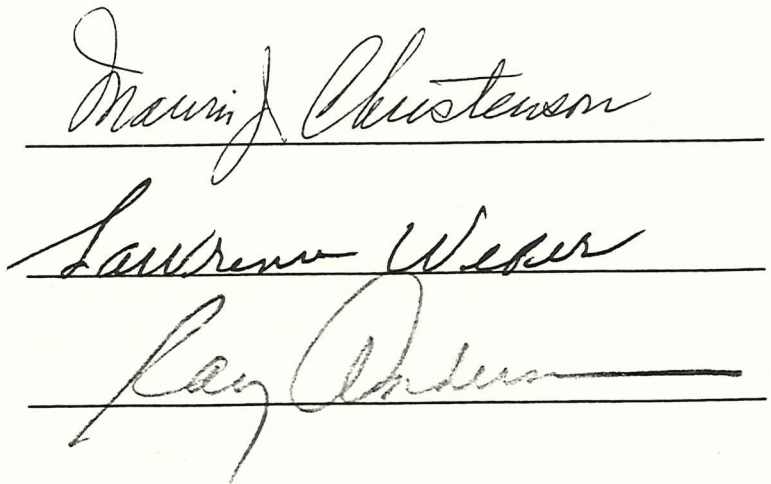 Mauri J. Christenson
Lawrence Weber
Ray Anderson